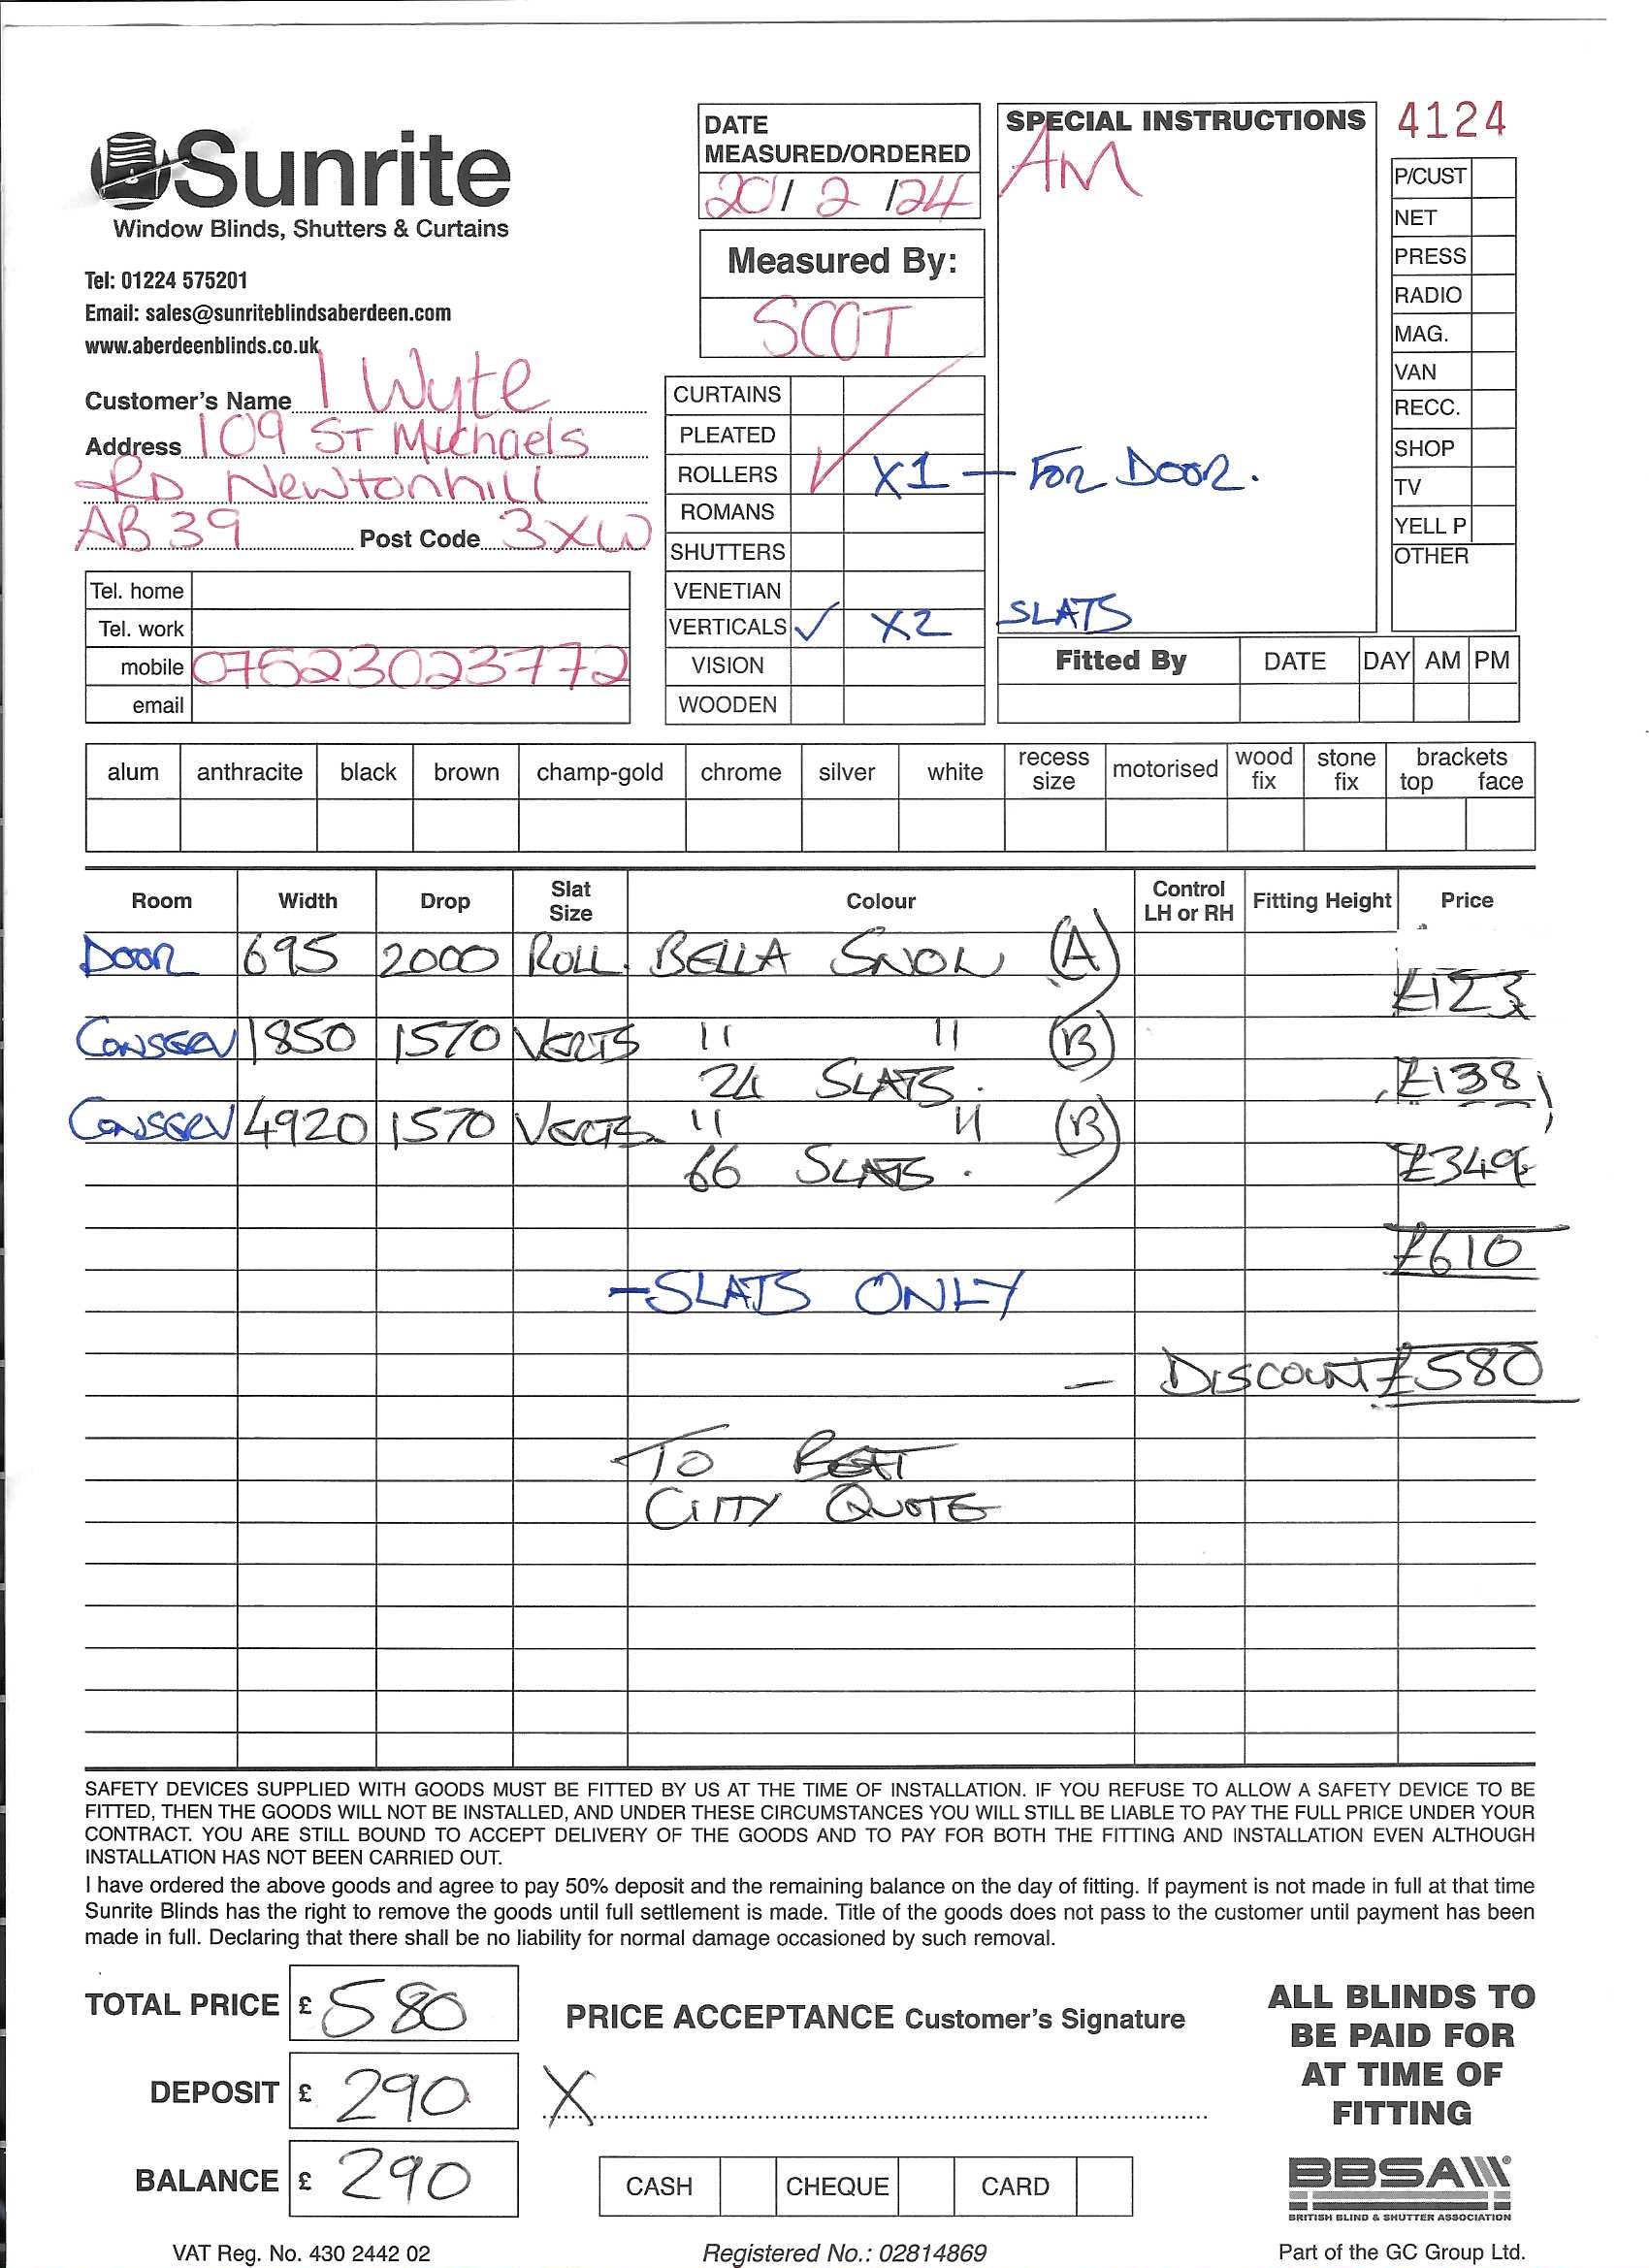 Sunrite
Window Blinds, Shutters & Curtains
Tel: 01224 575201
Email: sales@sunriteblindsaberdeen.com
www.aberdeenblinds.co.uk
Customer's Name I Wyte
Address 109 ST Michaels
RD Newtonhill
AB39 Post Code 3XW
Tel. home
Tel. work
mobile 07523023772
email
DATE
MEASURED/ORDERED
20/2/24
Measured By:
SCOT
CURTAINS
PLEATED
ROLLERS ✓ X1 — FOR DOOR.
ROMANS
SHUTTERS
VENETIAN
VERTICALS ✓ X2 SLATS
VISION
WOODEN
SPECIAL INSTRUCTIONS
AM
4124
P/CUST
NET
PRESS
RADIO
MAG.
VAN
RECC.
SHOP
TV
YELL P
OTHER
Fitted By DATE DAY AM PM
alum anthracite black brown champ-gold chrome silver white recess size motorised wood fix stone fix brackets top face
Room Width Drop Slat Size Colour Control LH or RH Fitting Height Price
DOOR 695 2000 ROLL. BELLA SNOW (A)
£123
CONSERV 1850 1570 VERTS " " (B)
24 SLATS. £138
CONSERV 4920 1570 VERTS " " (B)
66 SLATS. £349
£610
-SLATS ONLY
- DISCOUNT £580
TO BEAT
CITY QUOTE
SAFETY DEVICES SUPPLIED WITH GOODS MUST BE FITTED BY US AT THE TIME OF INSTALLATION. IF YOU REFUSE TO ALLOW A SAFETY DEVICE TO BE
FITTED, THEN THE GOODS WILL NOT BE INSTALLED, AND UNDER THESE CIRCUMSTANCES YOU WILL STILL BE LIABLE TO PAY THE FULL PRICE UNDER YOUR
CONTRACT. YOU ARE STILL BOUND TO ACCEPT DELIVERY OF THE GOODS AND TO PAY FOR BOTH THE FITTING AND INSTALLATION EVEN ALTHOUGH
INSTALLATION HAS NOT BEEN CARRIED OUT.
I have ordered the above goods and agree to pay 50% deposit and the remaining balance on the day of fitting. If payment is not made in full at that time
Sunrite Blinds has the right to remove the goods until full settlement is made. Title of the goods does not pass to the customer until payment has been
made in full. Declaring that there shall be no liability for normal damage occasioned by such removal.
TOTAL PRICE £ 580
DEPOSIT £ 290
BALANCE £ 290
PRICE ACCEPTANCE Customer's Signature
X
CASH CHEQUE CARD
ALL BLINDS TO
BE PAID FOR
AT TIME OF
FITTING
BBSA
BRITISH BLIND & SHUTTER ASSOCIATION
VAT Reg. No. 430 2442 02
Registered No.: 02814869
Part of the GC Group Ltd.